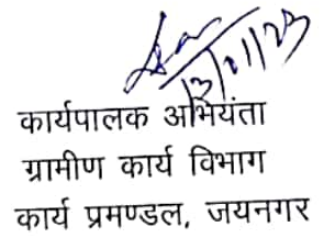 13/01/23
कार्यपालक अभियंता
ग्रामीण कार्य विभाग
कार्य प्रमण्डल, जयनगर